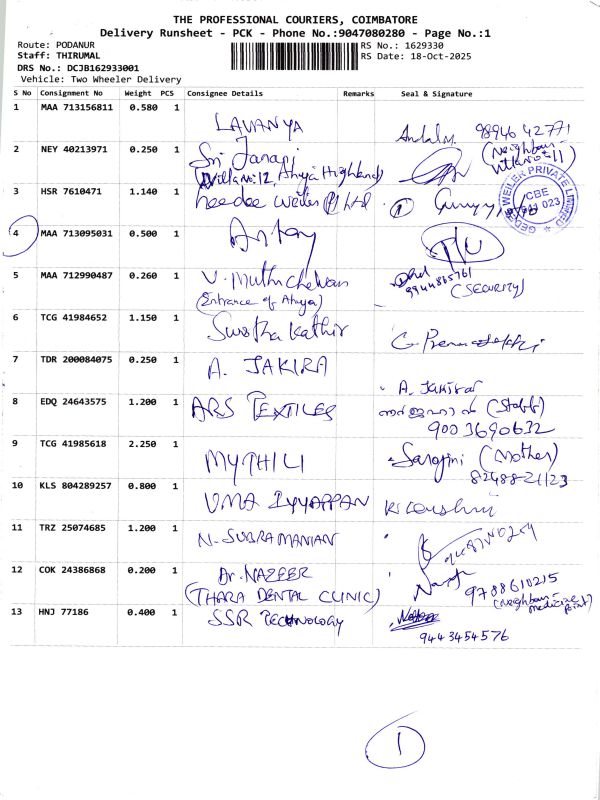 THE PROFESSIONAL COURIERS, COIMBATORE
Delivery Runsheet - PCK - Phone No.:9047080280 - Page No.:1
Route: PODANUR
RS No.: 1629330
Staff: THIRUMAL
RS Date: 18-Oct-2025
DRS No.: DCJB162933001
Vehicle: Two Wheeler Delivery
S No Consignment No Weight PCS Consignee Details Remarks Seal & Signature
1 MAA 713156811 0.580 1 LAVANYA 98946 42771
(Neighbour
2 NEY 40213971 0.250 1 Sri Janani
(Villa no:12, Ahuja Highland)
3 HSR 7610471 1.140 1 Geedee Weiler (P) Ltd 1
GEDEE WEILER PRIVATE LIMITED
CBE
4 MAA 713095031 0.500 1 Antony
5 MAA 712990487 0.260 1 V. Muthu Chelvan 9944865761
(Entrance of Ahuja) (SECURITY)
6 TCG 41984652 1.150 1 Swetha Kathir
7 TDR 200084075 0.250 1 A. JAKIRA
8 EDQ 24643575 1.200 1 ARS TEXTILES (Staff)
9003690632
9 TCG 41985618 2.250 1 MYTHILI Sarojini (Mother)
8248821123
10 KLS 804289257 0.800 1 UMA IYYAPPAN
11 TRZ 25074685 1.200 1 N. SUBRAMANIAN
12 COK 24386868 0.200 1 Dr. NAZEER 9788610215
(THARA DENTAL CLINIC) (Neighbour - medicine point)
13 HNJ 77186 0.400 1 SSR TECHNOLOGY
9443454576
1